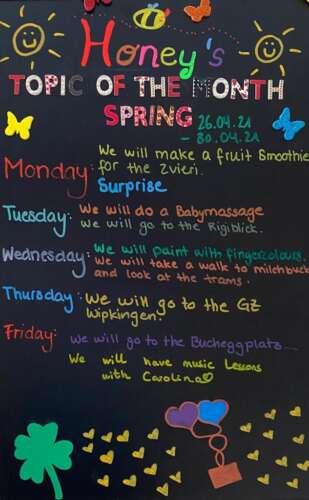 Honey's
TOPIC OF THE MONTH
SPRING 26.04.21
- 30.04.21
Monday: We will make a fruit Smoothie
for the Zvieri.
Surprise
Tuesday: We will do a Babymassage
We will go to the Rigiblick.
Wednesday: We will paint with fingercolours.
We will take a walk to milchbuck
and look at the trams.
Thursday: We will go to the GZ
Wipkingen.
Friday: We will go to the Bucheggplatz
We will have music Lessons
with Carolina